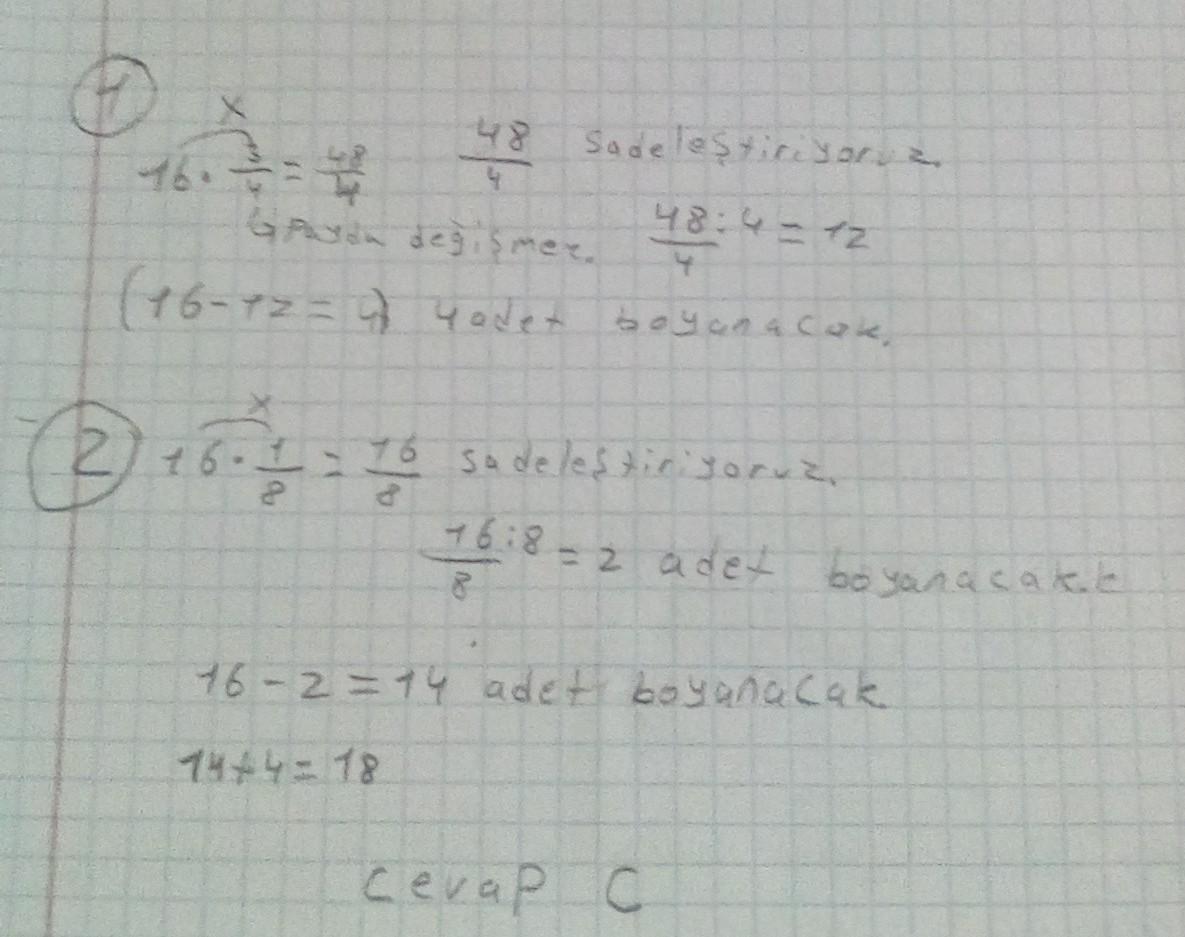 1
x
16 · 3/4 = 48/4 48/4 sadeleştiriyoruz.
↳ Payda değişmez. 48/4 : 4 = 12
(16 - 12 = 4) 4 adet boyanacak.
x
2 16 · 1/8 = 16/8 sadeleştiriyoruz.
16/8 : 8 = 2 adet boyanacak.
16 - 2 = 14 adet boyanacak
14 + 4 = 18
Cevap C